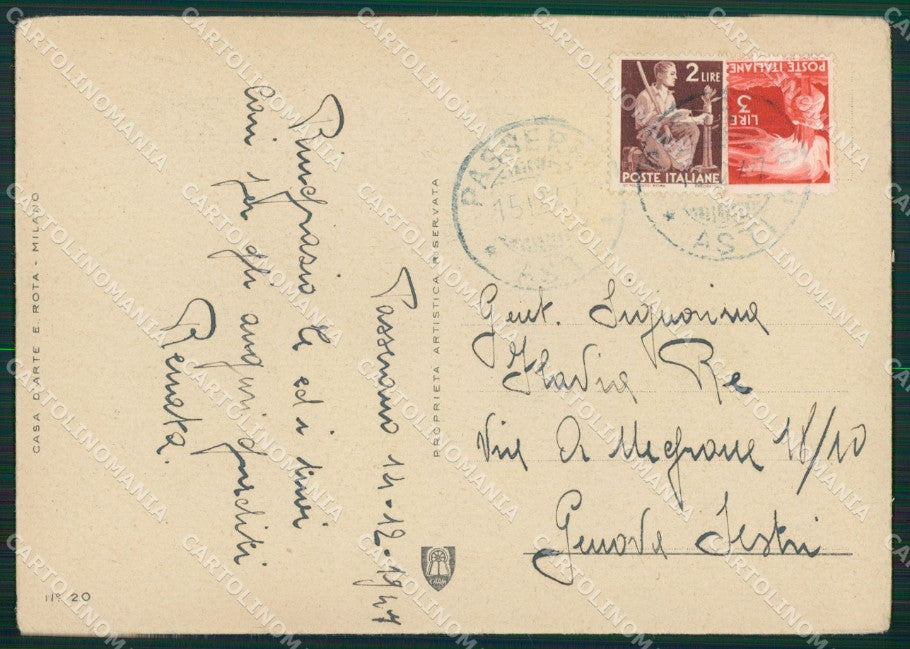 Passerano 14-12-1947
Ringrazio te ed i tuoi
cari per gli auguri graditi
Renata.
CASA D'ARTE E. ROTA - MILANO
Nº 20
PROPRIETÀ ARTISTICA RISERVATA
2 LIRE
POSTE ITALIANE
POSTE ITALIANE
LIRE 3
ASTI
ASTI
Gent. Signorina
Flavia Re
Via A Negrone 18/10
Genova Sestri
CARTOLINOMANIA